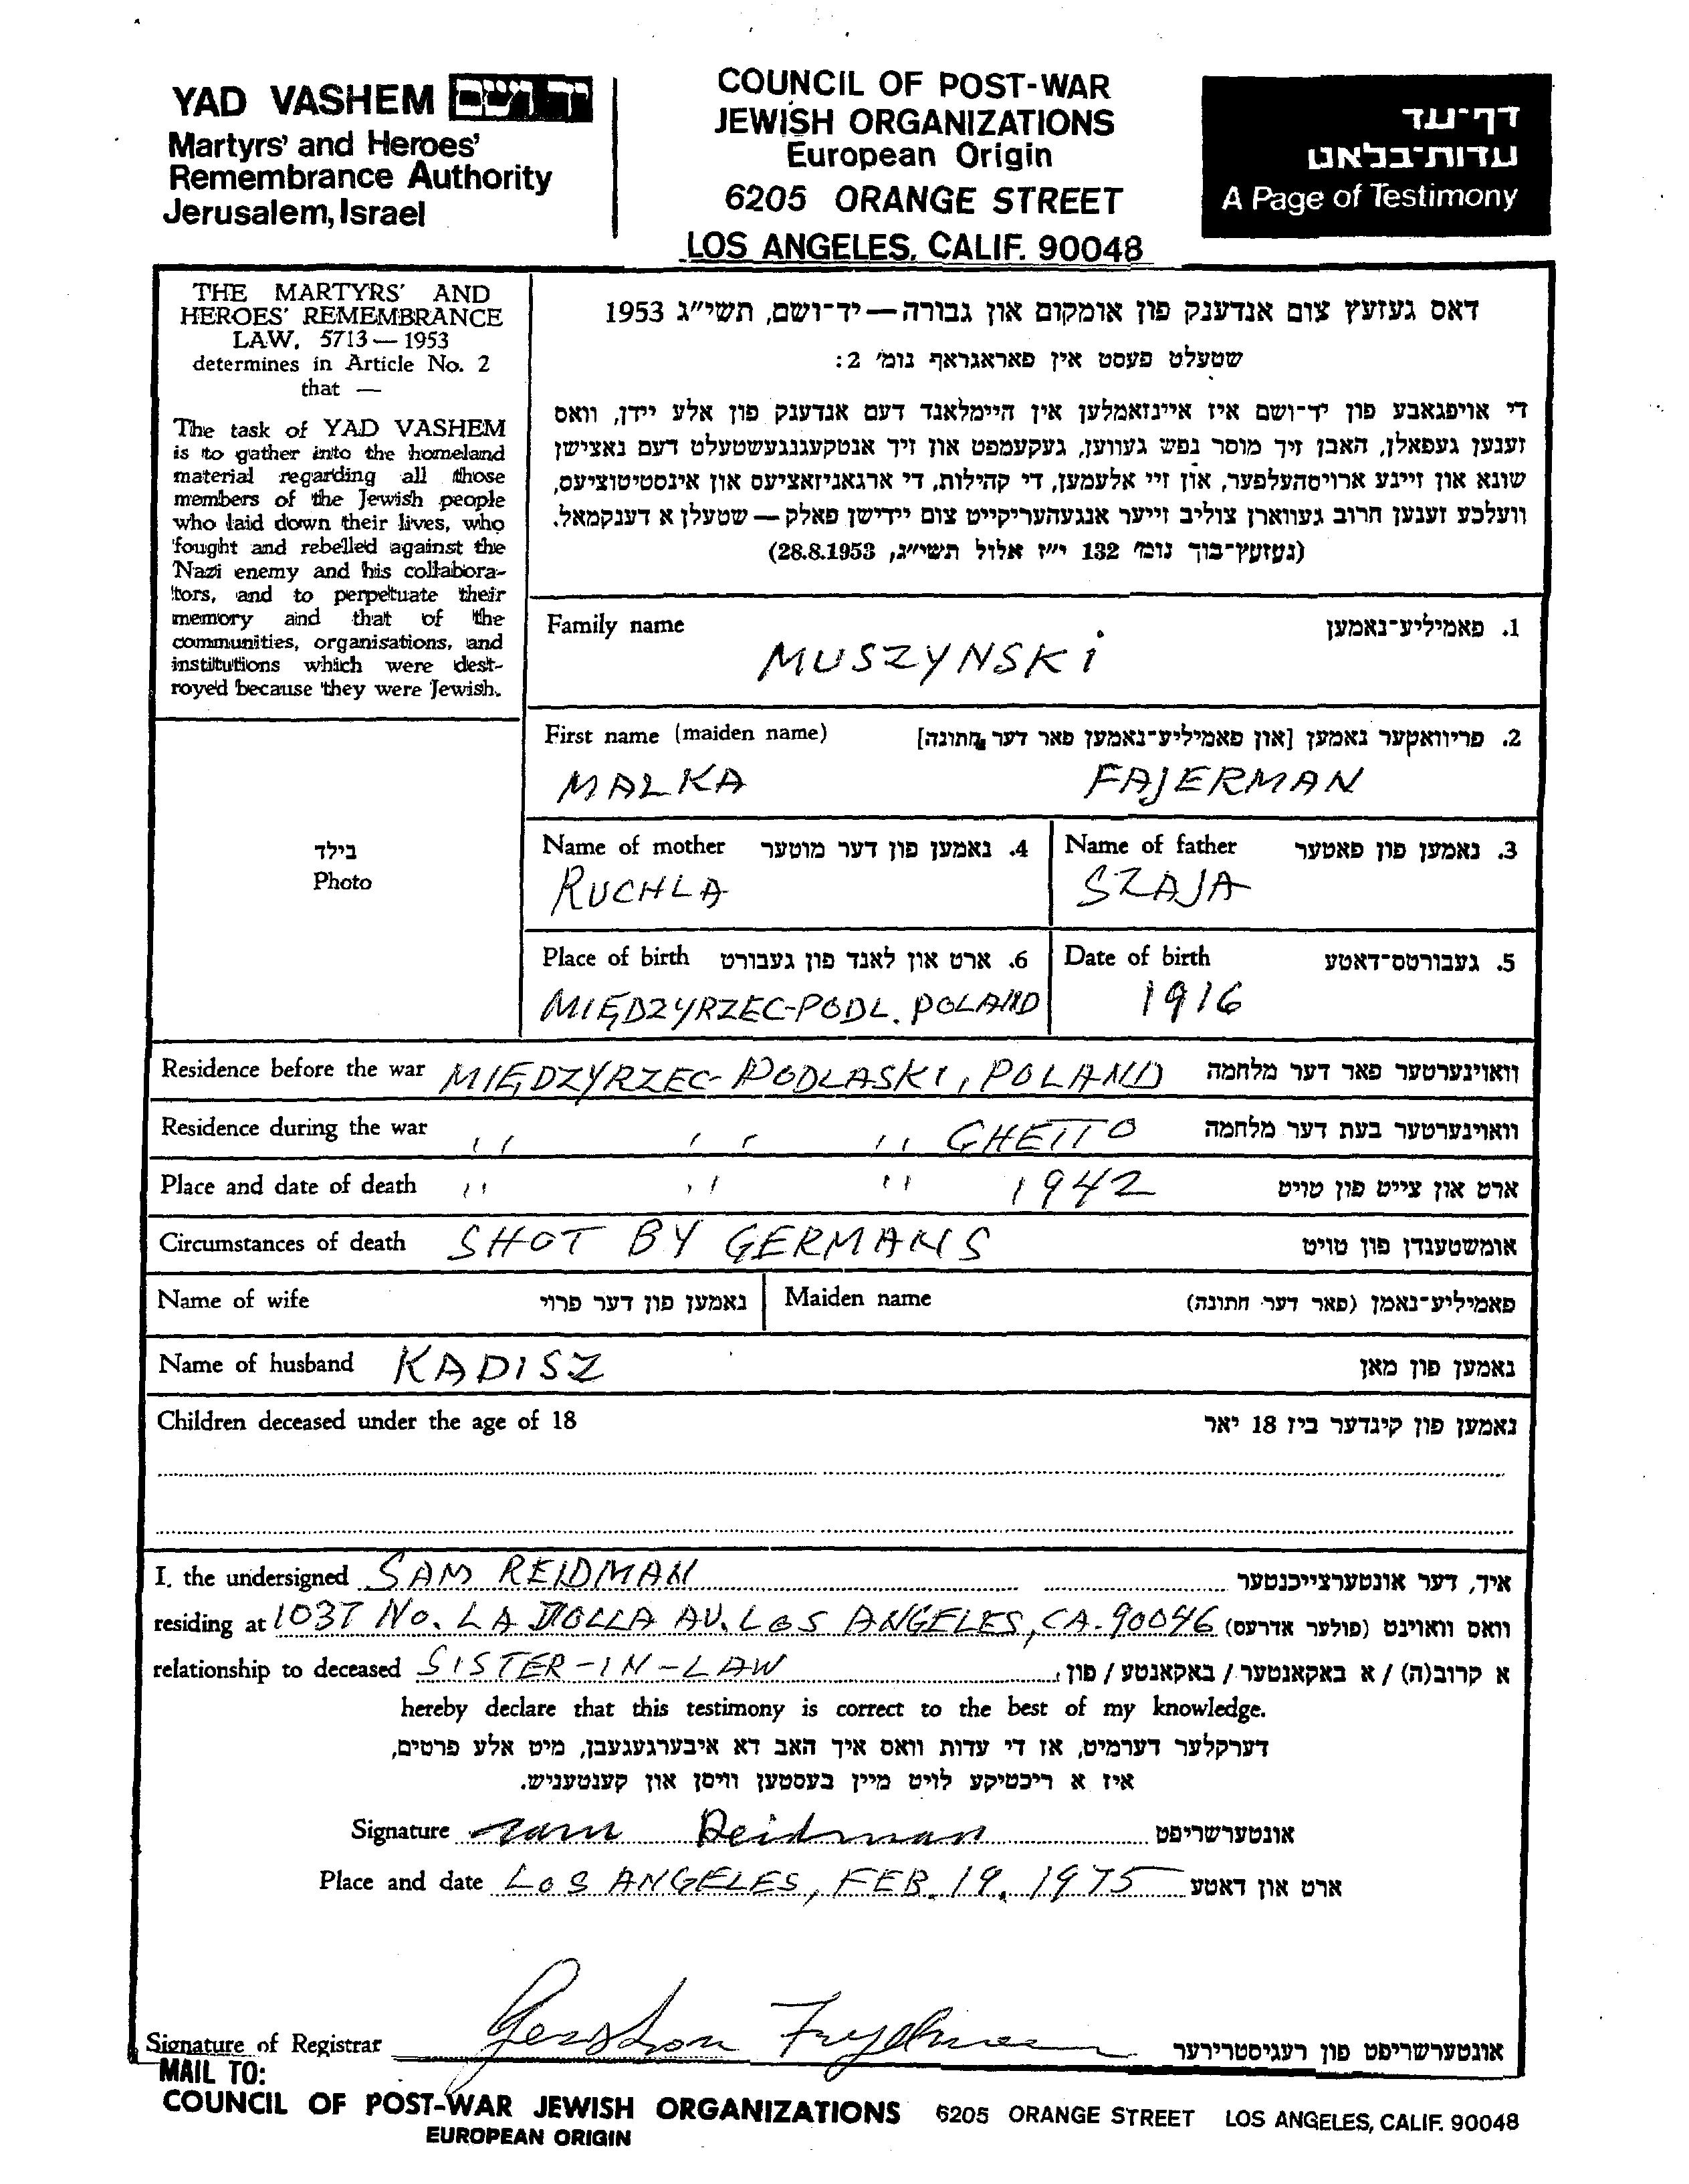 YAD VASHEM יד ושם
Martyrs' and Heroes'
Remembrance Authority
Jerusalem, Israel
COUNCIL OF POST-WAR
JEWISH ORGANIZATIONS
European Origin
6205 ORANGE STREET
LOS ANGELES, CALIF. 90048
דף-עד
עדות-בלאט
A Page of Testimony
THE MARTYRS' AND
HEROES' REMEMBRANCE
LAW, 5713—1953
determines in Article No. 2
that —
The task of YAD VASHEM
is to gather into the homeland
material regarding all those
members of the Jewish people
who laid down their lives, who
fought and rebelled against the
Nazi enemy and his collabora-
tors, and to perpetuate their
memory and that of the
communities, organisations, and
institutions which were dest-
royed because they were Jewish.
דאס געזעץ צום אנדענק פון אומקום און גבורה — יד-ושם, תשי"ג 1953
שטעלט פעסט אין פאראגראף נומ' 2:
די אויפגאבע פון יד-ושם איז איינזאמלען אין היימלאנד דעם אנדענק פון אלע יידן, וואס
זענען געפאלן, האבן זיך מוסר נפש געווען, געקעמפט און זיך אנטקעגנגעשטעלט דעם נאצישן
שונא און זיינע ארויסהעלפער, און זיי אלעמען, די קהילות, די ארגאניזאציעס און אינסטיטוציעס,
וועלכע זענען חרוב געווארן צוליב זייער אנגעהעריקייט צום יידישן פאלק — שטעלן א דענקמאל.
(געזעץ-בוך נומ' 132 י"ז אלול תשי"ג, 28.8.1953)
Family name 1. פאמיליע-נאמען
MUSZYNSKI
First name (maiden name) 2. פריוואטער נאמען [און פאמיליע-נאמען פאר דער חתונה]
MALKA FAJERMAN
בילד
Photo
Name of mother 4. נאמען פון דער מוטער Name of father 3. נאמען פון פאטער
RUCHLA SZAJA
Place of birth 6. ארט און לאנד פון געבורט Date of birth 5. געבורטס-דאטע
MIĘDZYRZEC-PODL. POLAND 1916
Residence before the war MIĘDZYRZEC-PODLASKI, POLAND וואוינערטער פאר דער מלחמה
Residence during the war " " " GHETTO וואוינערטער בעת דער מלחמה
Place and date of death " " " 1942 ארט און צייט פון טויט
Circumstances of death SHOT BY GERMANS אומשטענדן פון טויט
Name of wife נאמען פון דער פרוי Maiden name פאמיליע-נאמן (פאר דער חתונה)
Name of husband KADISZ נאמען פון מאן
Children deceased under the age of 18 נאמען פון קינדער ביז 18 יאר
I, the undersigned SAM REIDMAN איד, דער אונטערצייכנטער
residing at 1037 NO. LA JOLLA AV. LOS ANGELES, CA. 90046 וואס וואוינט (פולער אדרעס)
relationship to deceased SISTER-IN-LAW א קרוב(ה) / א באקאנטער / באקאנטע / פון
hereby declare that this testimony is correct to the best of my knowledge.
דערקלער דערמיט, אז די עדות וואס איך האב דא איבערגעגעבן, מיט אלע פרטים,
איז א ריכטיקע לויט מיין בעסטען וויסן און קענטעניש.
Signature Sam Reidman אונטערשריפט
Place and date LOS ANGELES, FEB. 19, 1975 ארט און דאטע
Signature of Registrar Gershon Frydman אונטערשריפט פון רעגיסטרירער
MAIL TO:
COUNCIL OF POST-WAR JEWISH ORGANIZATIONS 6205 ORANGE STREET LOS ANGELES, CALIF. 90048
EUROPEAN ORIGIN